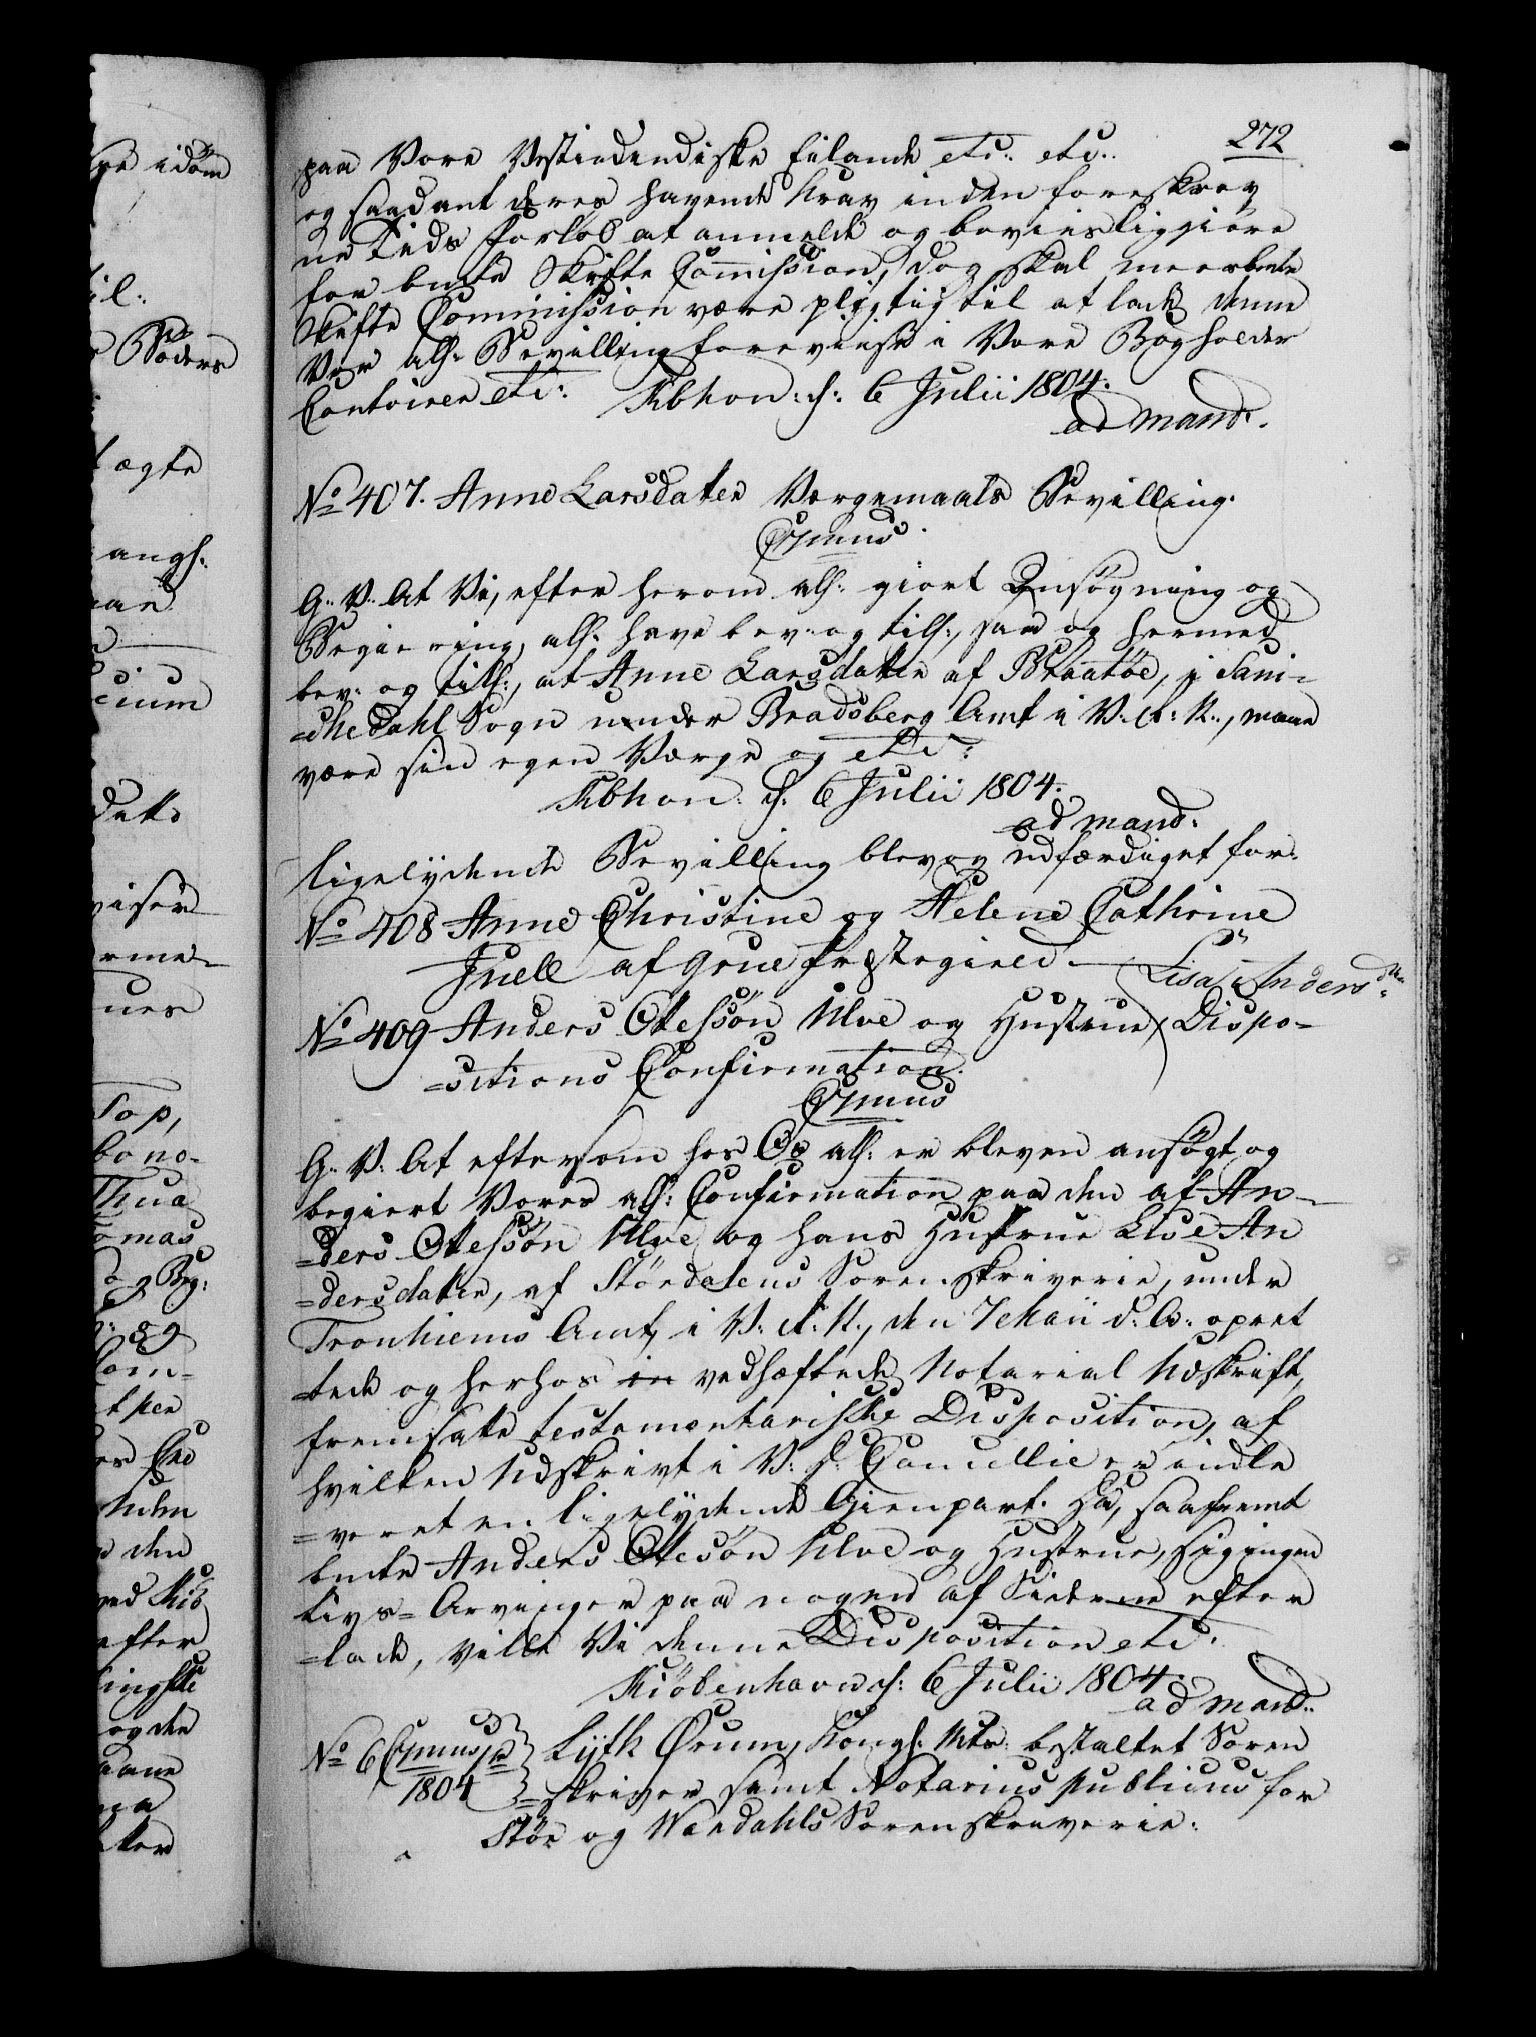 272
paa Vore Vestindindiske Eilande etc. etc.
og saadant deres havende Krav inden foreskrev
ne Tids Forløb at anmelde og beviisliggiöre
for bmte Skifte Commission, dog skal meerbmte
Skifte Commission være pligtig til at lade denne
Vor alh: Bevilling foreviise i Vore Bogholder
Contoirer etc: Kbhon: d: 6 Julii 1804.
ad mand:
No 407. Anne Larsdatter Vergemaals Bevilling.
C7mus
G: V: At Vi, efter herom alh: giort Ansøgning og
Begiering, alh: have bev: og till:, saa og hermed
bev: og till:, at Anne Larsdatter af Braatöe, i Sani-
=chedahl Sogn under Bradsberg Amt i V: R: N:, maae
være sin egen Værge og etc:
Kbhon: d: 6 Julii 1804.
ad mand:
Ligelydende Bevilling blev og udfærdiget for:
No 408 Anne Christine og Helene Cathrine
Juell af Grue Præstegield.
Lisa Andersdtr
No 409 Anders Ottesön Ulve og Hustrue Dispo-
=sitions Confirmation.
C7mus
G: V: At eftersom hos Os alh: er bleven ansögt og
begiert Vores alh: Confirmation paa den af An-
=ders Ottesön Ulve og hans Hustrue Lise An
=dersdatter, af Stördalens Sorenskriverie, under
Tronhiems Amt, i V: R: N:, den 7 Maii d: A: opret
=tede og herhos in vedhæftede Notarial Udskrift,
fremsatte testamentariske Disposition, af
hvilken Udskrivt i V: D: Cancellie er indle
=veret en ligelydende Gienpart. Da, saafremt
bmte Anders Ottesön Ulve og Hustrue, sig ingen
Livs=Arvinger paa nogen af Siderne efter
=lade, ville Vi denne Disposition etc:
Kiöbenhavn d: 6 Julii 1804.
ad mand:
No 6 C7mus
1804
Lytk Ørum, Kongl: Mts: bestaltet Soren
=skriver samt Notarius publicus for
Stör og Værdahls Sorenskriverie.